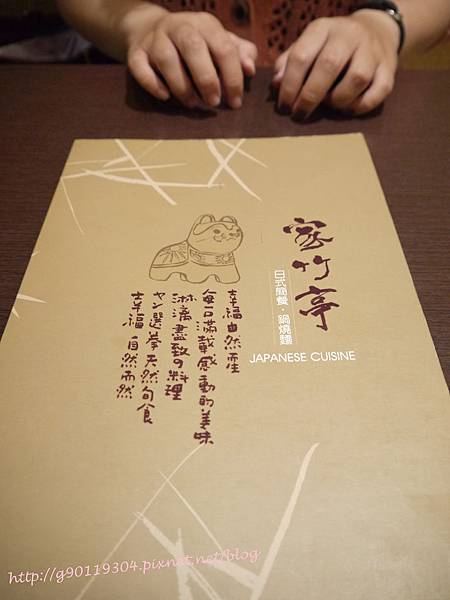 家竹亭
日式簡餐・鍋燒麵
JAPANESE CUISINE
幸福由然而生
每口滿載感動的美味
淋漓盡致の料理
ヤン選拳天然旬食
幸福 自然而然
http://g90119304.pixnet.net/blog